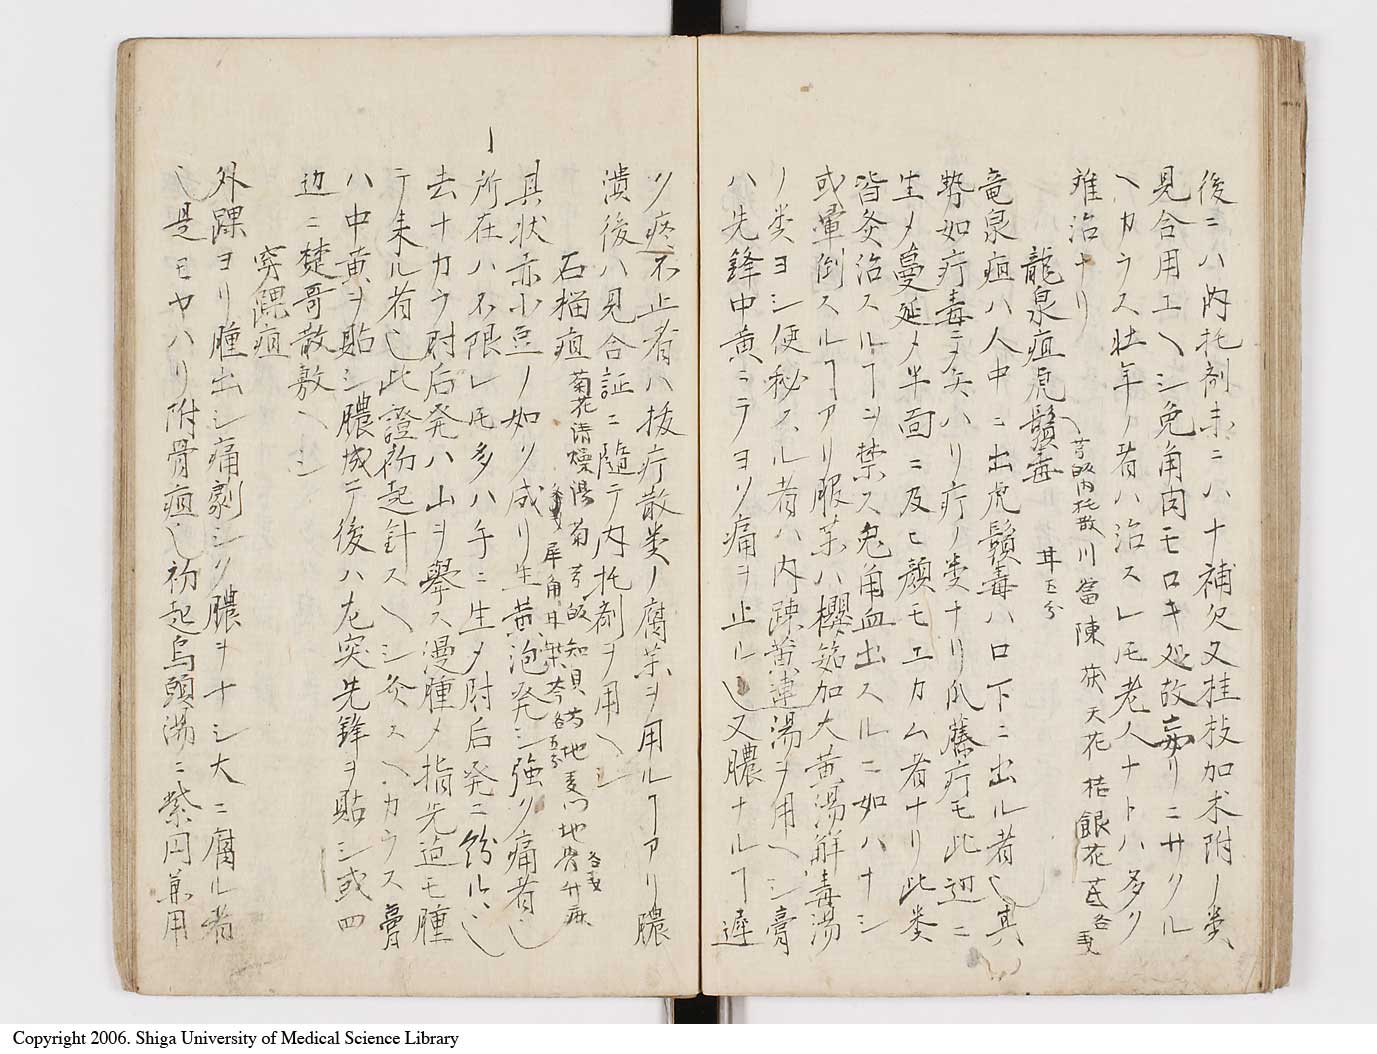 後ニハ内托剤未ニハ十補欠又桂枝加朮附ノ類
見合用エヘシ兎角肉モロキ処故妄リニサクル
ヘカラス壮年ノ者ハ治スレ𪜈老人ナトハ多ク
難治ナリ
龍泉疽虎鬚毒
芎 皈 内托散 川 當 陳 茯 天花 桔 銀花 芪 各
甘 五分
竜泉疽ハ人中ニ出虎鬚毒ハ口下ニ出ル者乄其
勢如疔毒ニ矢ハリ疔ノ类ナリ瓜藤疔モ此辺ニ
生メ蔓延メ半面ニ及ヒ顔モエカム者ナリ此类
皆灸治スルヿヲ禁ス兎角血出スルニ如ハナシ
或暈倒スルヿアリ服薬ハ櫻筎加大黄湯解毒湯
ノ类ヨシ便秘スル者ハ内疎黄連湯ヲ用ヘシ膏
ハ先鋒中黄ニテヨリ痛ヲ止ル乄又膿ナルヿ遅
ク疼不止者ハ拔疔散类ノ腐薬ヲ用ルヿアリ膿
潰後ハ見合証ニ隨テ内托剤ヲ用ヘシ
石榴疽
菊花清燥湯 菊 芎 皈 知 貝 芍 地 麦門 地骨 升麻 各
犀角 甘 柴 芩 各五分
其状赤小豆ノ如ク成リ生黄泡発シ強ク痛者乄
所在ハ不限レ𪜈多ハ手ニ生メ肘后発ニ紛ルヽ
去ナカラ肘后発ハ山ヲ擧ス漫腫メ指先迠モ腫
テ来ル者乄此證初起針スヘシ灸スヘカラス膏
ハ中黄ヲ貼シ膿成テ後ハ左突先鋒ヲ貼シ或四
边ニ楚哥散敷ヘシ
穿踝疽
外踝ヨリ腫出シ痛劇シク膿ヲナシ大ニ腐ル者
乄是モヤハリ附骨疽乄初起烏頭湯ニ紫円兼用
Copyright 2006. Shiga University of Medical Science Library